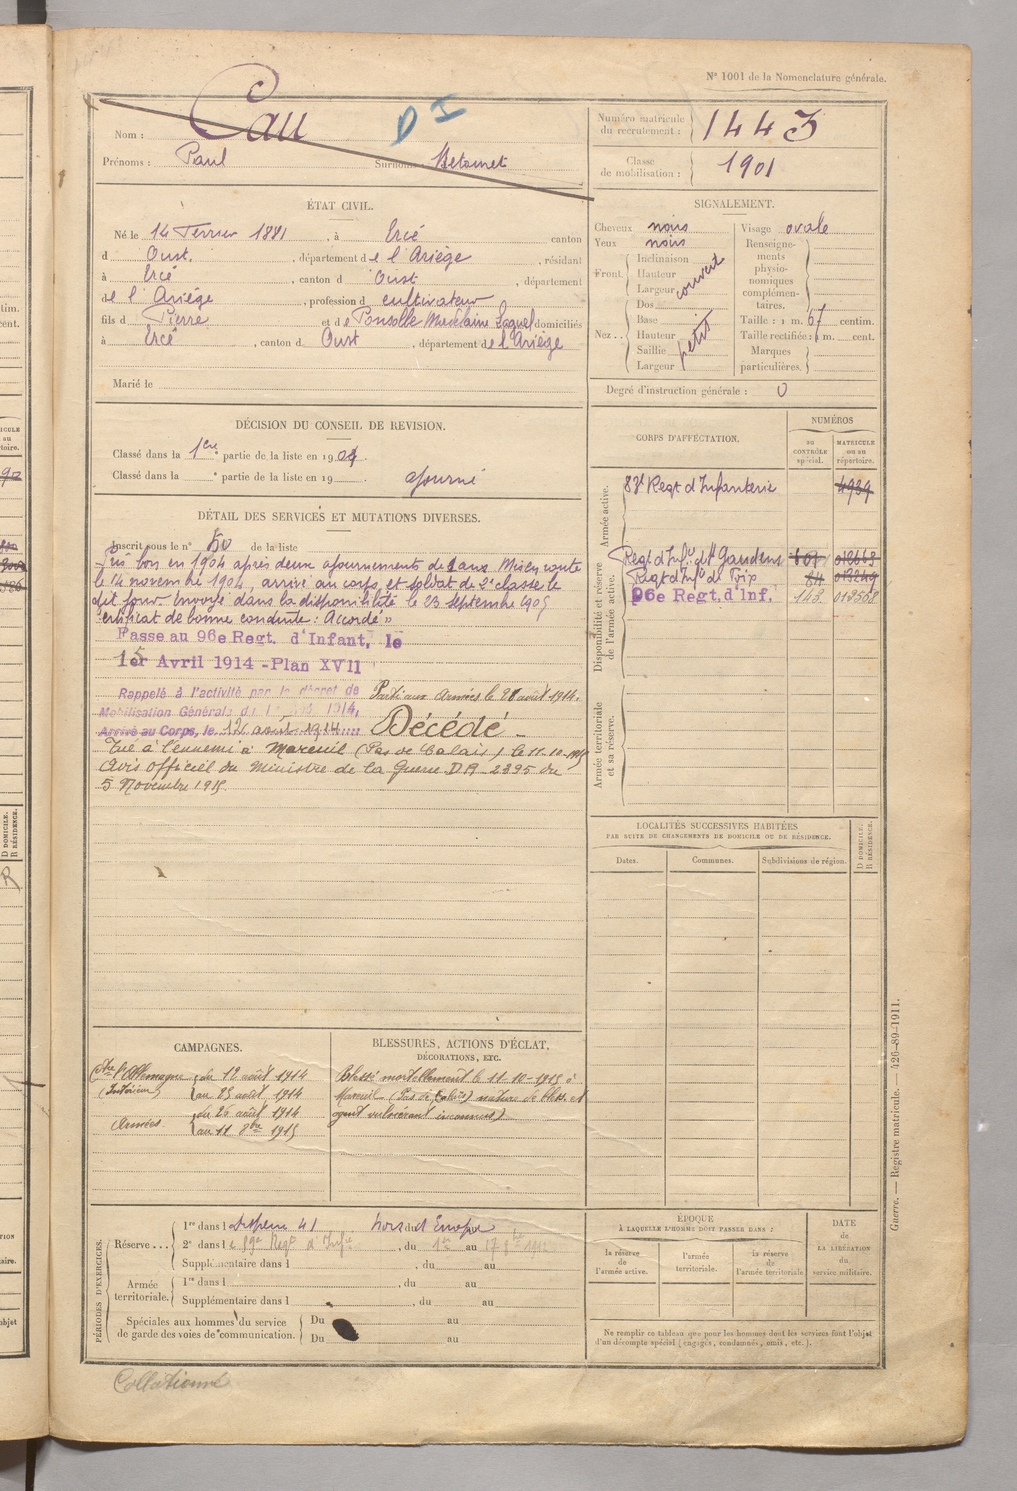 N° 1001 de la Nomenclature générale.
Nom : Cau
D I
Prénoms : Paul Surnoms :
Numéro matricule du recrutement : 1443
Classe de mobilisation : 1901
ÉTAT CIVIL.
Né le 14 Février 1881, à Ercé canton
d Oust, département de l'Ariège, résidant
à Ercé, canton d Oust, département
de l'Ariège, profession d cultivateur
fils d Pierre et de Ponsolle Madelaine domiciliés
à Ercé, canton d Oust, département de l'Ariège
Marié le
SIGNALEMENT.
Cheveux noirs
Yeux noirs
Front Inclinaison Hauteur Largeur couvert
Nez Dos Base Hauteur Saillie Largeur petit
Visage ovale
Renseignements physionomiques complémentaires.
Taille : 1 m. 67 centim.
Taille rectifiée : 1 m. cent.
Marques particulières.
Degré d'instruction générale : 0
DÉCISION DU CONSEIL DE REVISION.
Classé dans la 1ere partie de la liste en 1904.
Classé dans la e partie de la liste en 19 ajourné
DÉTAIL DES SERVICES ET MUTATIONS DIVERSES.
Inscrit sous le n° 50 de la liste
bon en 1904 après deux ajournements de 1 ans. Mis en route
le 14 novembre 1904, arrivé au corps, et soldat de 2e classe le
dit jour. Envoyé dans la disponibilité le 23 septembre 1905
Certificat de bonne conduite : Accordé »
Passe au 96e Regt. d'Infant, le
1er Avril 1914 - Plan XVII
Rappelé à l'activité par le décret de
Mobilisation Générale du 1914,
Arrivé au Corps, le 12 août 1914
Parti aux Armées le août 1914.
Décédé -
Tué à l'ennemi à Mareuil (Pas de Calais) le 11-10-1915
Avis Officiel du Ministre de la Guerre D A - 2395 du
5 Novembre 1915.
CORPS D'AFFECTATION.
NUMÉROS
AU CONTRÔLE spécial.
MATRICULE ou au répertoire.
Armée active.
83e Regt d'Infanterie 4939
Disponibilité et réserve de l'armée active.
Regt d'Infie de St Gaudens 601
Regt d'Infie de Foix 64
96e Regt. d'Inf. 143
Armée territoriale et sa réserve.
LOCALITÉS SUCCESSIVES HABITÉES
PAR SUITE DE CHANGEMENTS DE DOMICILE OU DE RÉSIDENCE.
Dates.
Communes.
Subdivisions de région.
D DOMICILE.
R RÉSIDENCE.
CAMPAGNES.
Ctre l'Allemagne du 12 août 1914
(Intérieur) au 25 août 1914
Armées du 26 août 1914
au 11 8bre 1915
BLESSURES, ACTIONS D'ÉCLAT,
DÉCORATIONS, ETC.
Blessé mortellement le 11-10-1915 à
Mareuil (Pas de Calais) nature de bless. et
agent vulnérant inconnus)
PÉRIODES D'EXERCICES.
Réserve ... 1re dans l Dispense 41 hors d'Europe
2e dans le 59e Regt d'Infie, du 1er au 17 8bre
Supplémentaire dans l, du au
Armée territoriale. 1re dans l, du au
Supplémentaire dans l, du au
Spéciales aux hommes du service de garde des voies de communication. Du au
Du au
ÉPOQUE
À LAQUELLE L'HOMME DOIT PASSER DANS :
la réserve de l'armée active.
l'armée territoriale.
la réserve de l'armée territoriale
DATE DE LA LIBÉRATION du service militaire.
Ne remplir ce tableau que pour les hommes dont les services font l'objet
d'un décompte spécial (engagés, condamnés, omis, etc.).
Guerre. — Registre matricule. — 426-89-1911.
Collationné